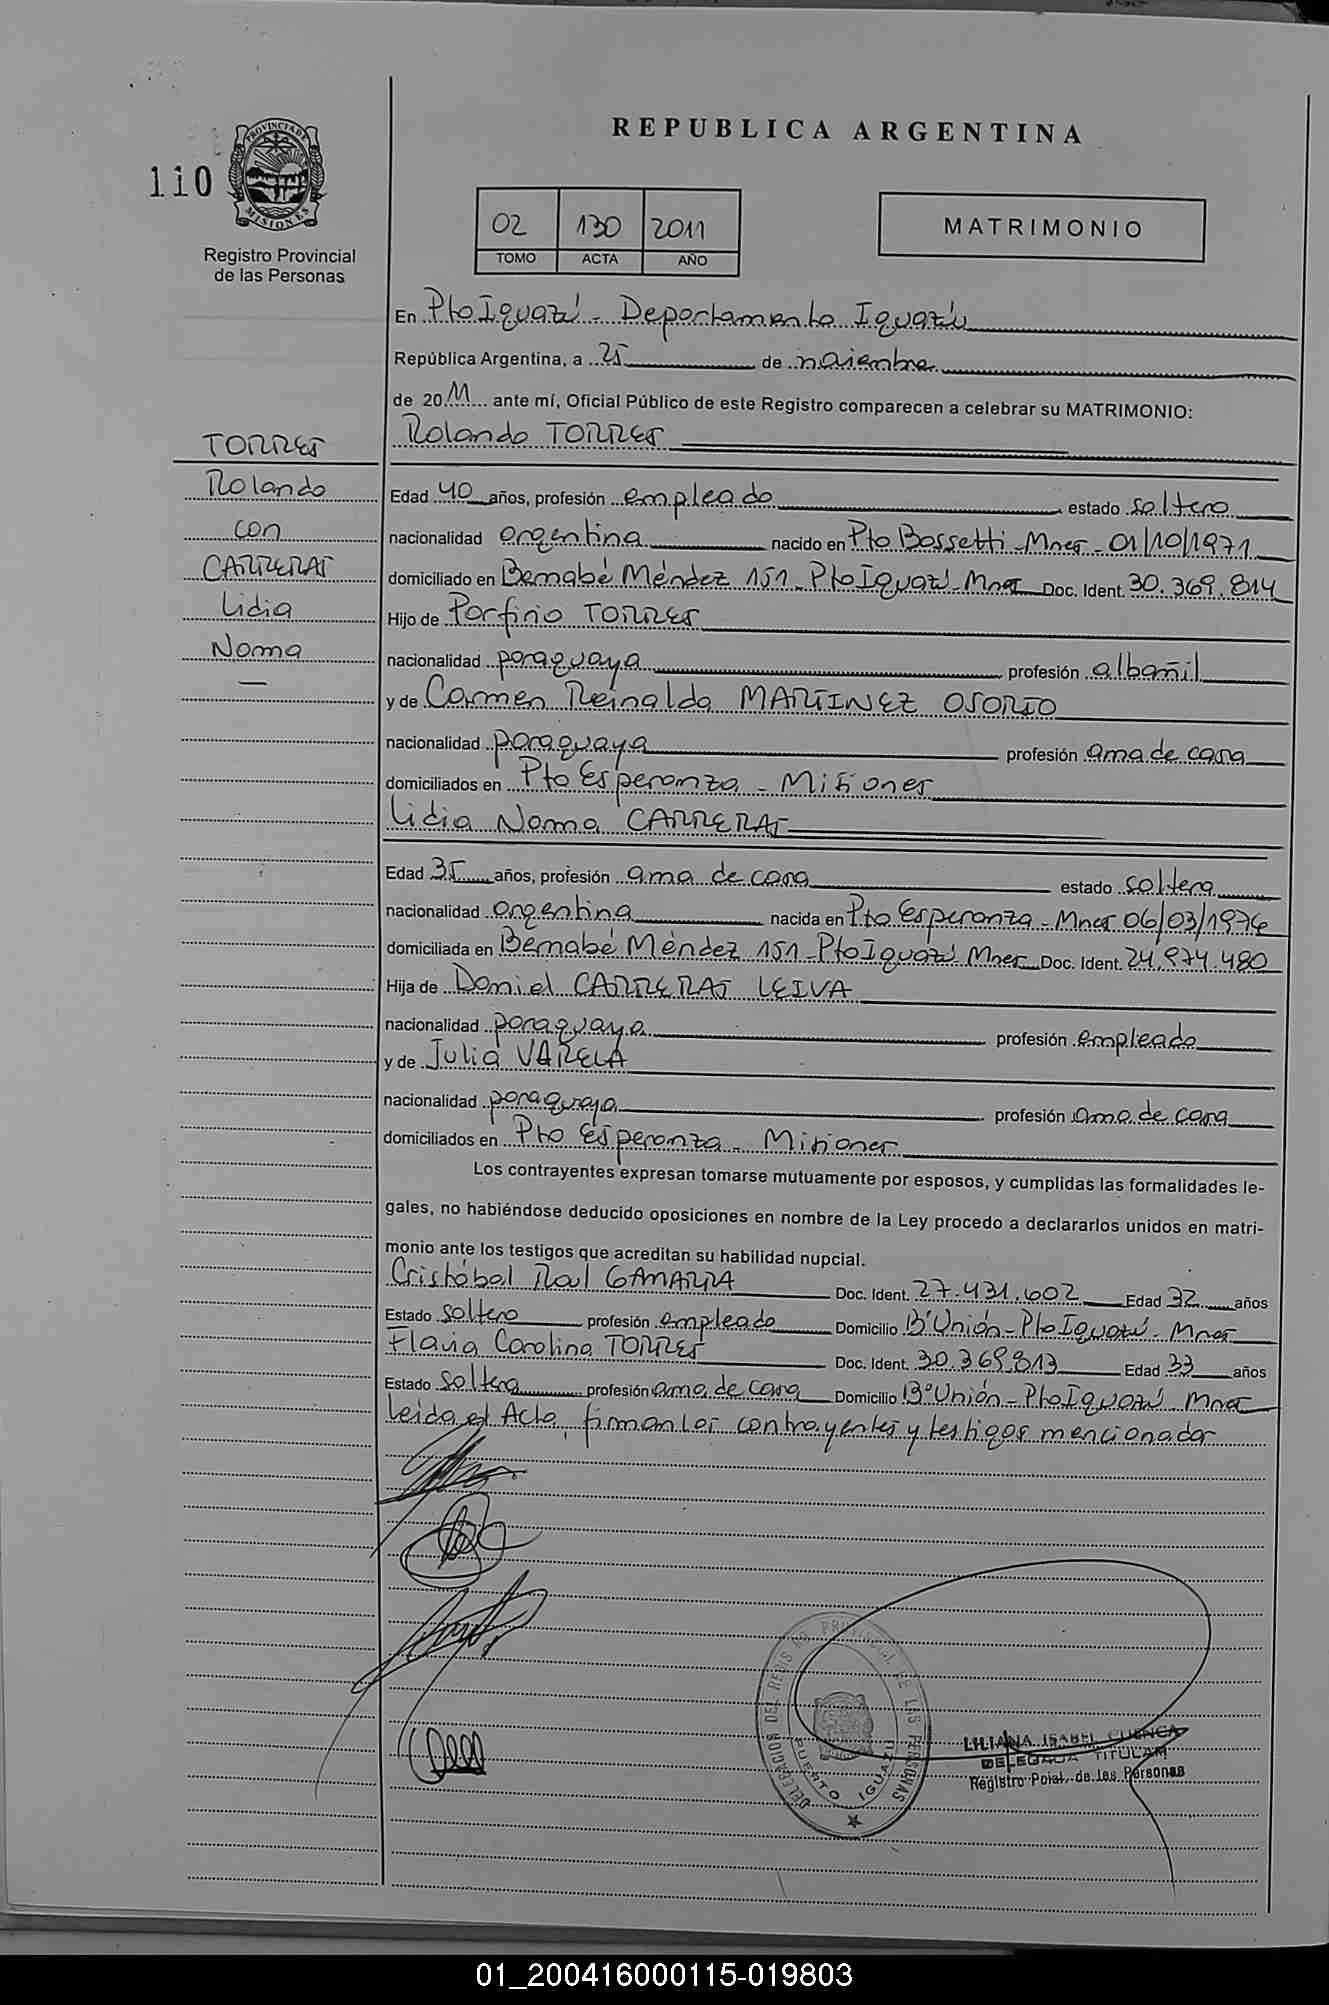 REPUBLICA ARGENTINA
110
PROVINCIA DE MISIONES
Registro Provincial
de las Personas
02 130 2011
TOMO ACTA AÑO
MATRIMONIO
En Pto Iguazú - Departamento Iguazú
República Argentina, a 25 de noviembre
de 2011 ante mí, Oficial Público de este Registro comparecen a celebrar su MATRIMONIO:
Rolando TORRES
TORRES
Rolando
con
CARRERAS
Lidia
Norma
Edad 40 años, profesión empleado estado soltero
nacionalidad argentina nacido en Pto Bossetti - Mnes - 01/10/1971
domiciliado en Bernabé Méndez 151 - Pto Iguazú - Mnes Doc. Ident. 30.369.814
Hijo de Porfirio TORRES
nacionalidad paraguaya profesión albañil
y de Carmen Reinalda MARTINEZ OSORIO
nacionalidad paraguaya profesión ama de casa
domiciliados en Pto Esperanza - Misiones
Lidia Norma CARRERAS
Edad 35 años, profesión ama de casa estado soltera
nacionalidad argentina nacida en Pto Esperanza - Mnes 06/03/1976
domiciliada en Bernabé Méndez 151 - Pto Iguazú Mnes Doc. Ident. 24.974.480
Hija de Daniel CARRERAS LEIVA
nacionalidad paraguaya profesión empleado
y de Julia VARELA
nacionalidad paraguaya profesión ama de casa
domiciliados en Pto Esperanza - Misiones
Los contrayentes expresan tomarse mutuamente por esposos, y cumplidas las formalidades le-
gales, no habiéndose deducido oposiciones en nombre de la Ley procedo a declararlos unidos en matri-
monio ante los testigos que acreditan su habilidad nupcial.
Cristóbal Raul GAMARRA Doc. Ident. 27.431.602 Edad 32 años
Estado soltero profesión empleado Domicilio Bº Unión - Pto Iguazú - Mnes
Flavia Carolina TORRES Doc. Ident. 30.369.813 Edad 33 años
Estado soltera profesión ama de casa Domicilio Bº Unión - Pto Iguazú Mnes
Leida el Acta, firman los contrayentes y testigos mencionados
DELEGACION DEL REGISTRO PROVINCIAL DE LAS PERSONAS
PUERTO IGUAZU
LILIANA ISABEL CUENCA
DELEGADA TITULAR
Registro Pcial. de las Personas
01_200416000115-019803